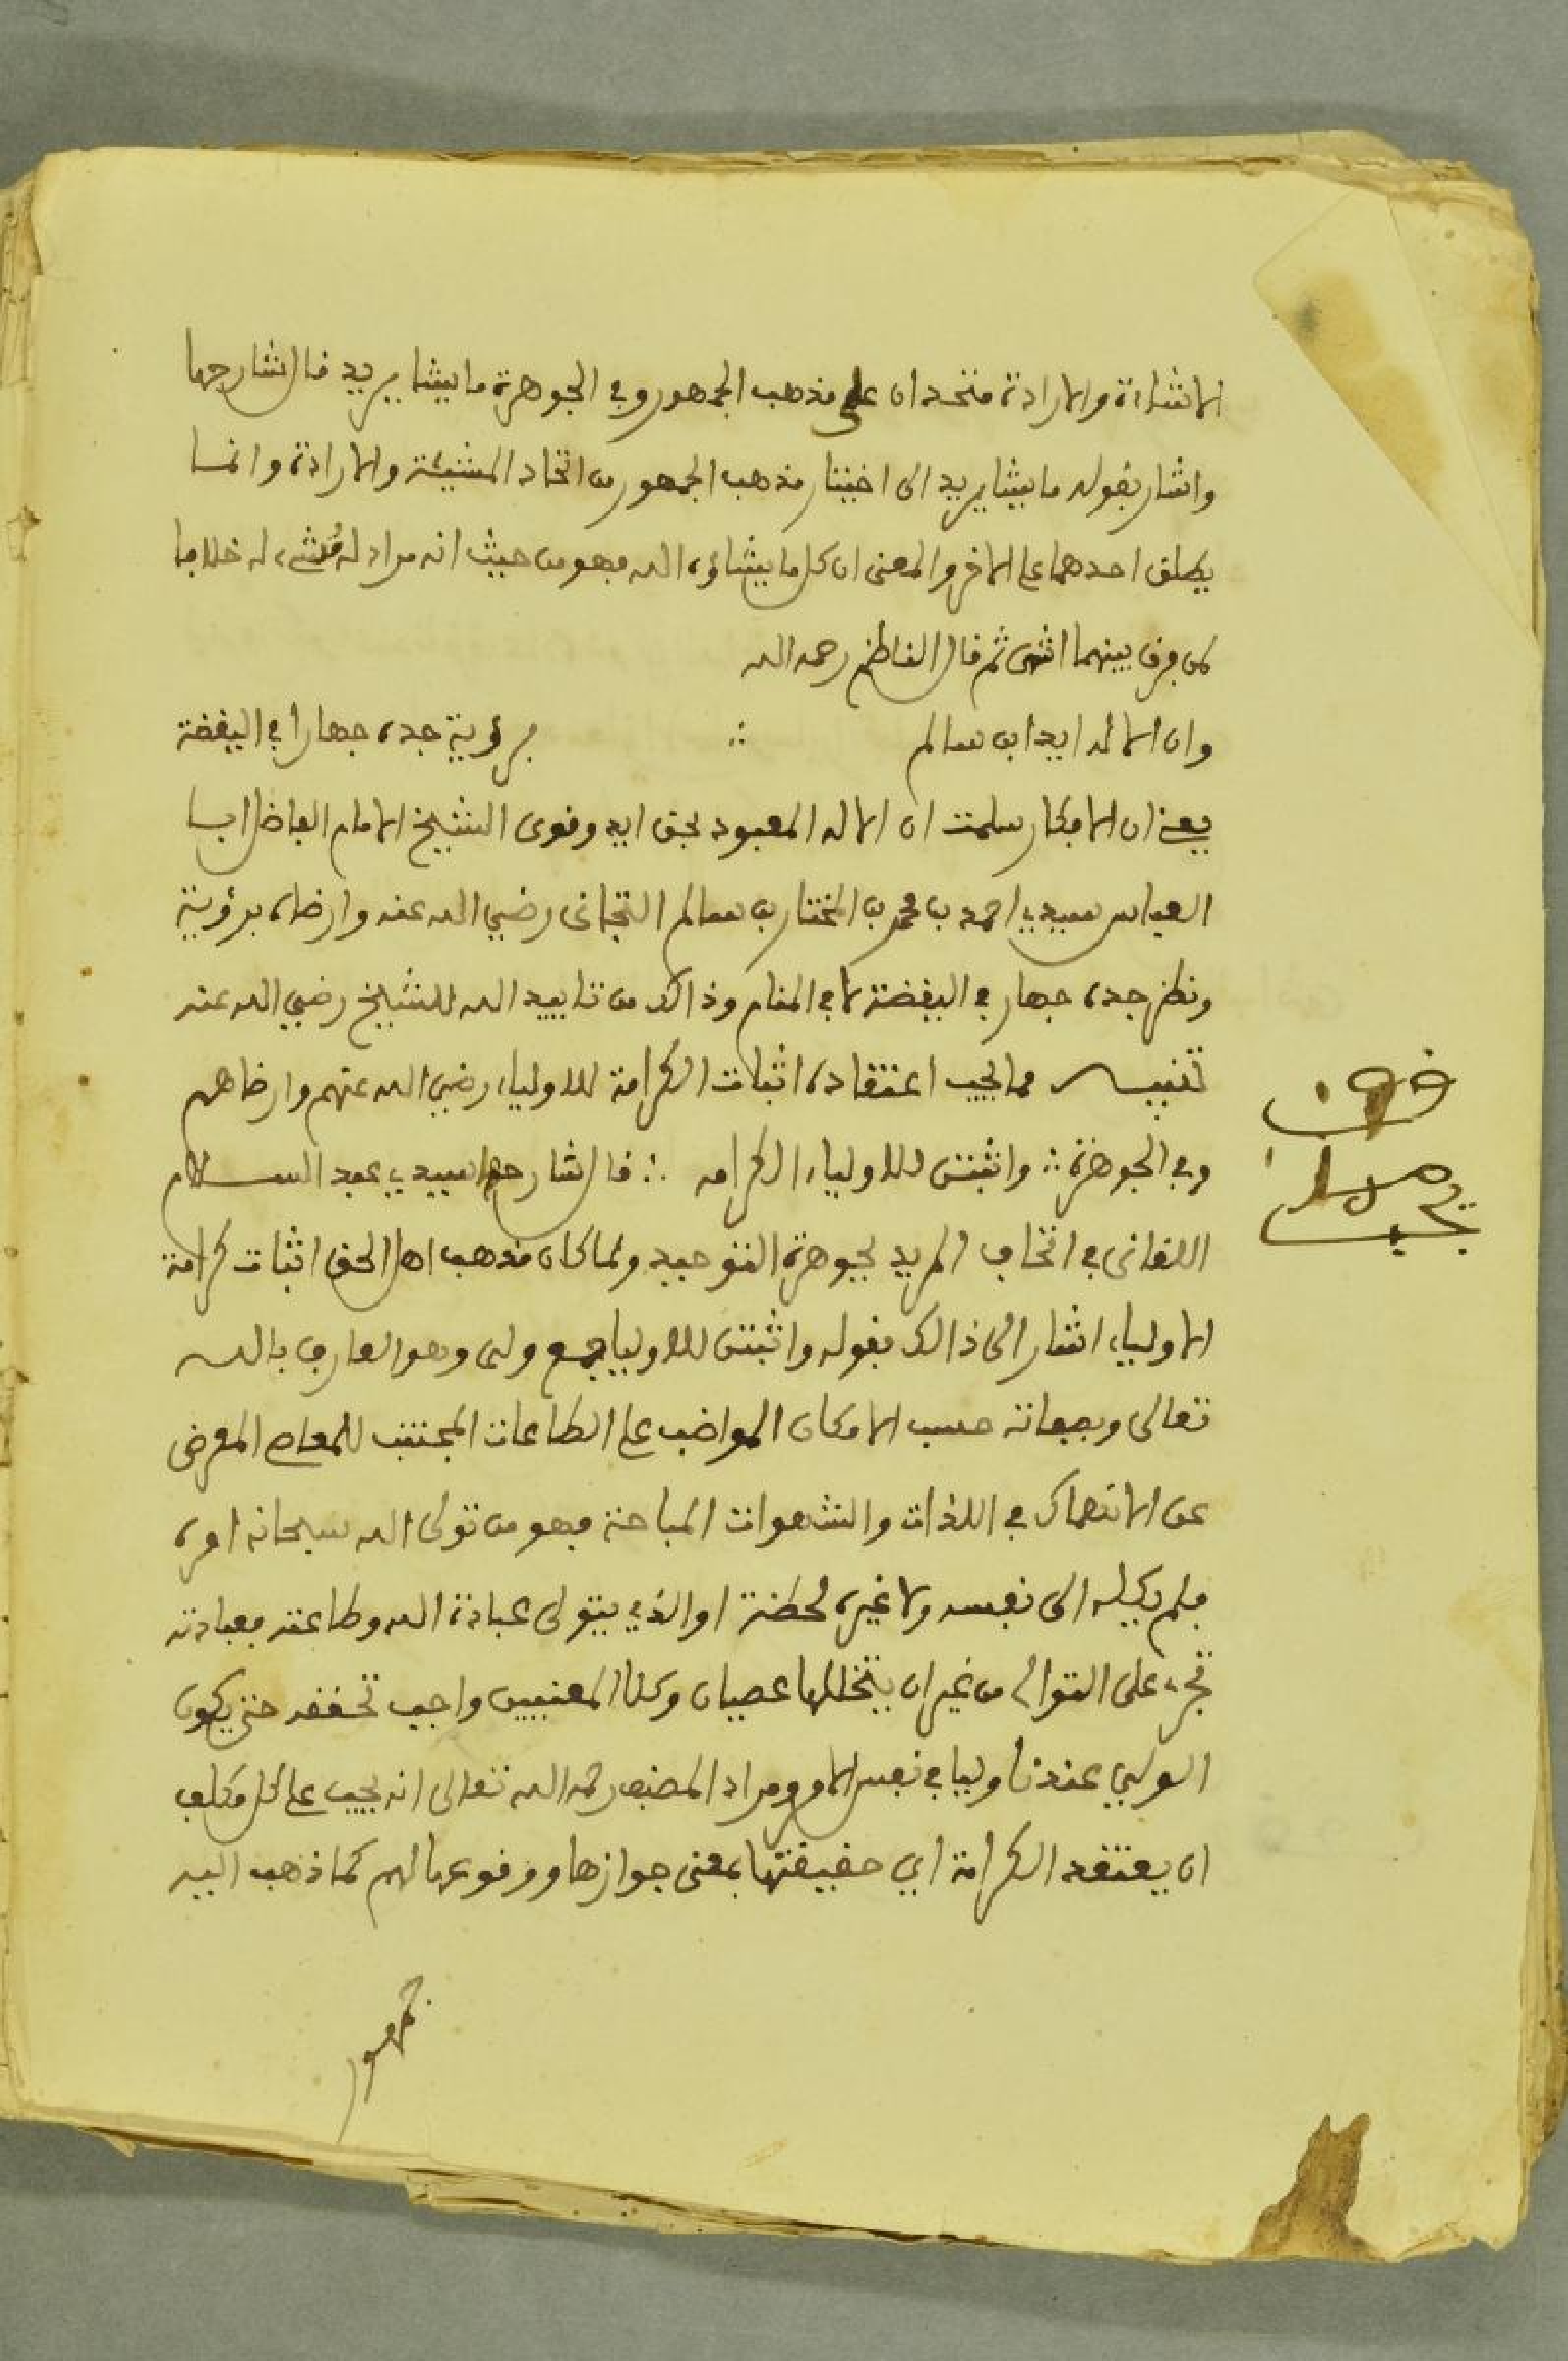 الاشاءة والارادة متحدان على مذهب الجمهور وفي الجوهرة ما يشا يريد قال شارحها
واشار بقوله ما يشا يريد الى اختيار مذهب الجمهور من اتحاد المشيئة والارادة وانما
يطلق احدهما على الاخر والمعنى ان كل ما يشاؤه الله فهو من حيث انه مراد له مُشيء له خلافا
لمن فرق بينهما انتهى ثم قال الناظم رحمه الله
وان الاله ايد ابن سالم ∴ برؤية جده جهارا في اليقضة
يعني ان الافكار سلمت ان الاله المعبود بحق ايد وقوى الشيخ الامام الفاضل ابا
العباس سيدي احمد بن محمد بن المختار بن سالم التجاني رضي الله عنه وارضاه برؤية
ونظر جده جهار في اليقضة لا في المنام وذالك من تاييد الله للشيخ رضي الله عنه
تنبيه مما يجب اعتقاده اثبات الكرامة للاولياء رضي الله عنهم وارضاهم
وفي الجوهرة ∴ واثبتن للاولياء الكرامه ∴ قال شارحها سيدي عبد السلام
اللقاني في اتحاف المريد لجوهرة التوحيد ولما كان مذهب اهل الحق اثبات كرامة
الاولياء اشار الى ذالك بقوله واثبتن للاوليا جمع ولى وهو العارف بالله
تعالى وصفاته حسب الامكان المواضب على الطاعات المجتنب للمعاصي المعرض
عن الانهماك في اللذات والشهوات المباحة فهو من تولى الله سبحانه امره
فلم يكله الى نفسه ولا غيره لحظة او الذي يتولى عبادة الله وطاعته فعبادته
تجري على التوالي من غير ان يتخللها عصيان وكلا المعنيين واجب تحققه حتى يكون
الولي عندنا وليا في نفس الامر ومراد المصنف رحمه الله تعالى انه يجب على كل مكلف
ان يعتقد الكرامة اي حقيقتها بمعنى جوازها ووقوعها لهم كما ذهب اليه
جمهور